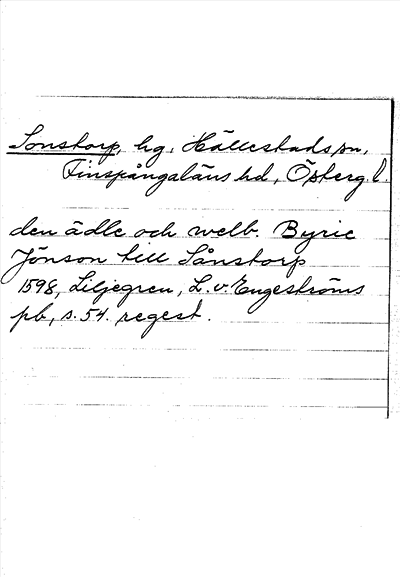 Sonstorp, hg, Hällestads sn,
Finspångaläns hd, Österg. l.
den ädle och welb. Byrie
Jönson till Sånstorp
1598, Liljegren, L. v. Engeströms
pb, s. 54. regest.